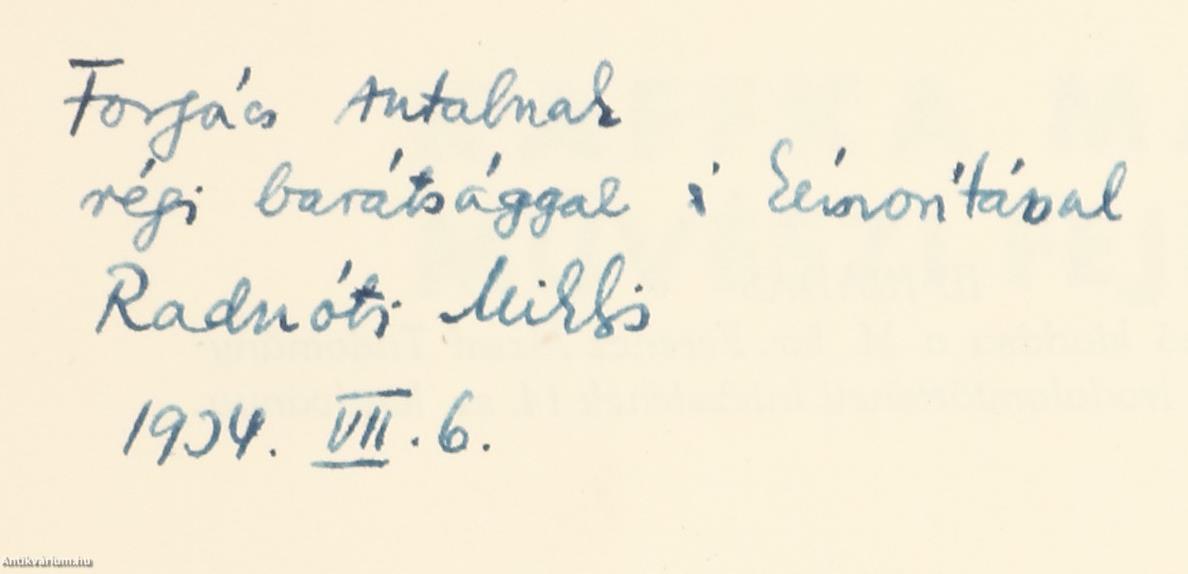 Forgács Antalnak
régi barátsággal s kézszorítással
Radnóti Miklós
1934. VII. 6.
Antikvárium.hu